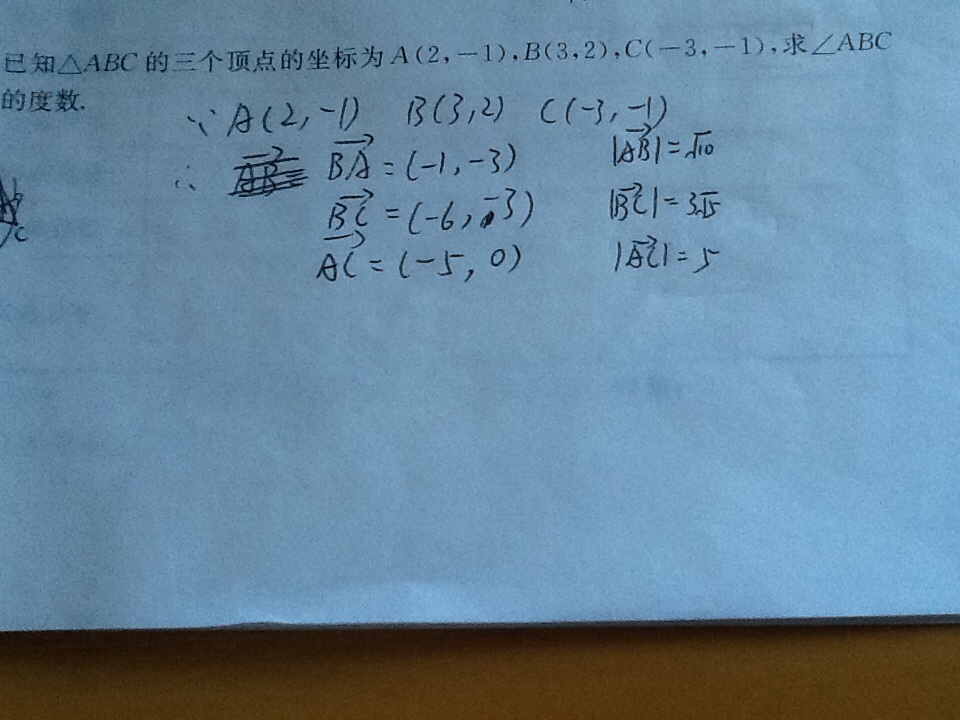 已知△ABC的三个顶点的坐标为A(2,-1),B(3,2),C(-3,-1),求∠ABC
的度数.
∵ A(2,-1) B(3,2) C(-3,-1)
∴ BA=(-1,-3) |AB|=√10
BC=(-6,-3) |BC|=3√5
AC=(-5,0) |AC|=5